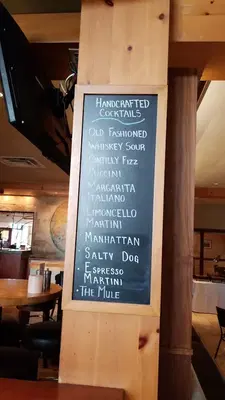 HANDCRAFTED
COCKTAILS
OLD FASHIONED
WHISKEY SOUR
CHTILLY FIZZ
PICCINI
MARGARITA
ITALIANO
LIMONCELLO
MARTINI
MANHATTAN
SALTY DOG
• ESPRESSO
MARTINI
• THE MULE